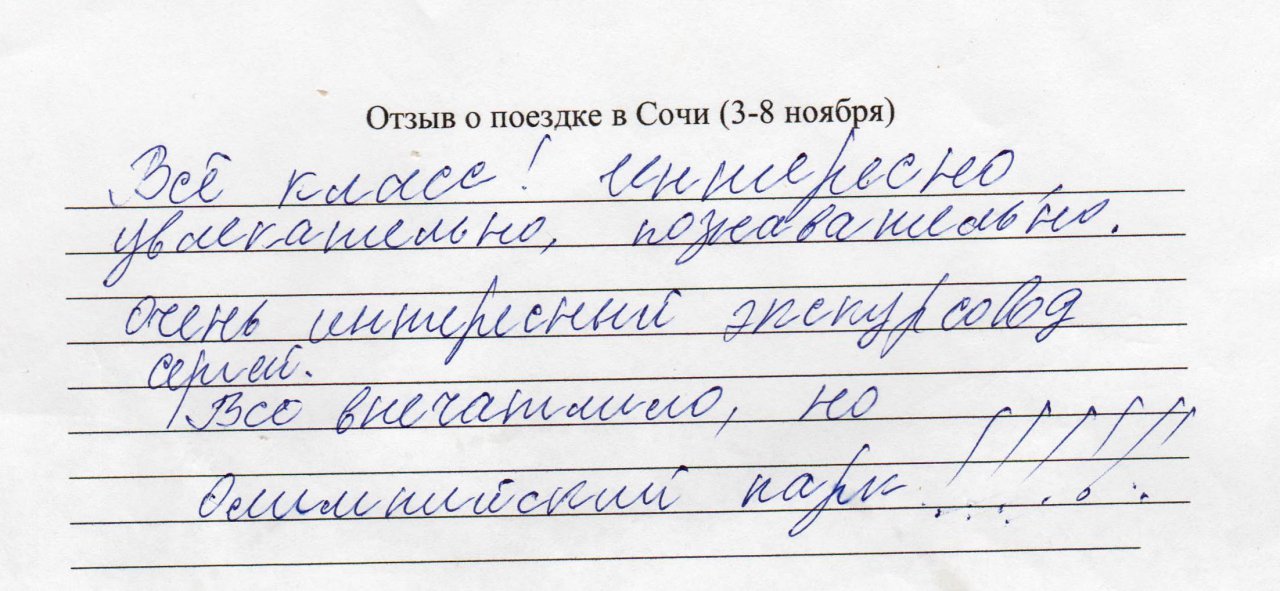 Отзыв о поездке в Сочи (3-8 ноября)
Всё класс! Интересно,
увлекательно, пожавательно.
очень интересный экскурсовод
сергей.
Всё впечатлило, но
Олимпийский парк !!!!!!